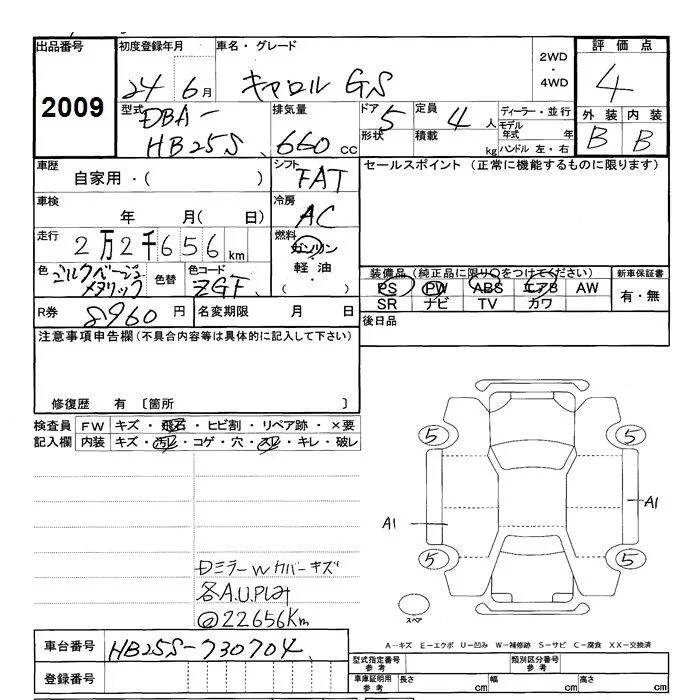 出品番号 初度登録年月 車名・グレード 2WD・4WD 評価点
2009 24 6月 キャロル GS 4
型式 排気量 ドア 定員 ディーラー・並行 外装 内装
DBA-HB25S 660cc 5 4人 モデル年式 年 B B
形状 積載 kg ハンドル 左・右
車歴 シフト セールスポイント (正常に機能するものに限ります)
自家用・( ) FAT
車検 冷房
年 月( 日) AC
走行 燃料
2万2千656km ガソリン・軽油・( )
色 色替 色コード 装備品 (純正品に限り○をつけてください) 新車保証書
ミルクベージュメタリック ZGF PS PW ABS エアB AW 有・無
SR ナビ TV カワ
R券 8960円 名変期限 月 日 後日品
注意事項申告欄 (不具合内容等は具体的に記入して下さい)
修復歴 有 〔箇所 〕
検査員 FW キズ・飛石・ヒビ割・リペア跡・×要
記入欄 内装 キズ・汚レ・コゲ・穴・スレ・キレ・破レ
5 5
A1 A1
5 5
スペア
ミラーWカバーキズ
各A.U.
@22656Km
A-キズ E-エクボ U-凹み W-補修跡 S-サビ C-腐食 XX-交換済
車台番号 HB25S-730704
登録番号
型式指定番号 参考 類別区分番号 参考
車庫証明用 参考 長さ cm 幅 cm 高さ cm